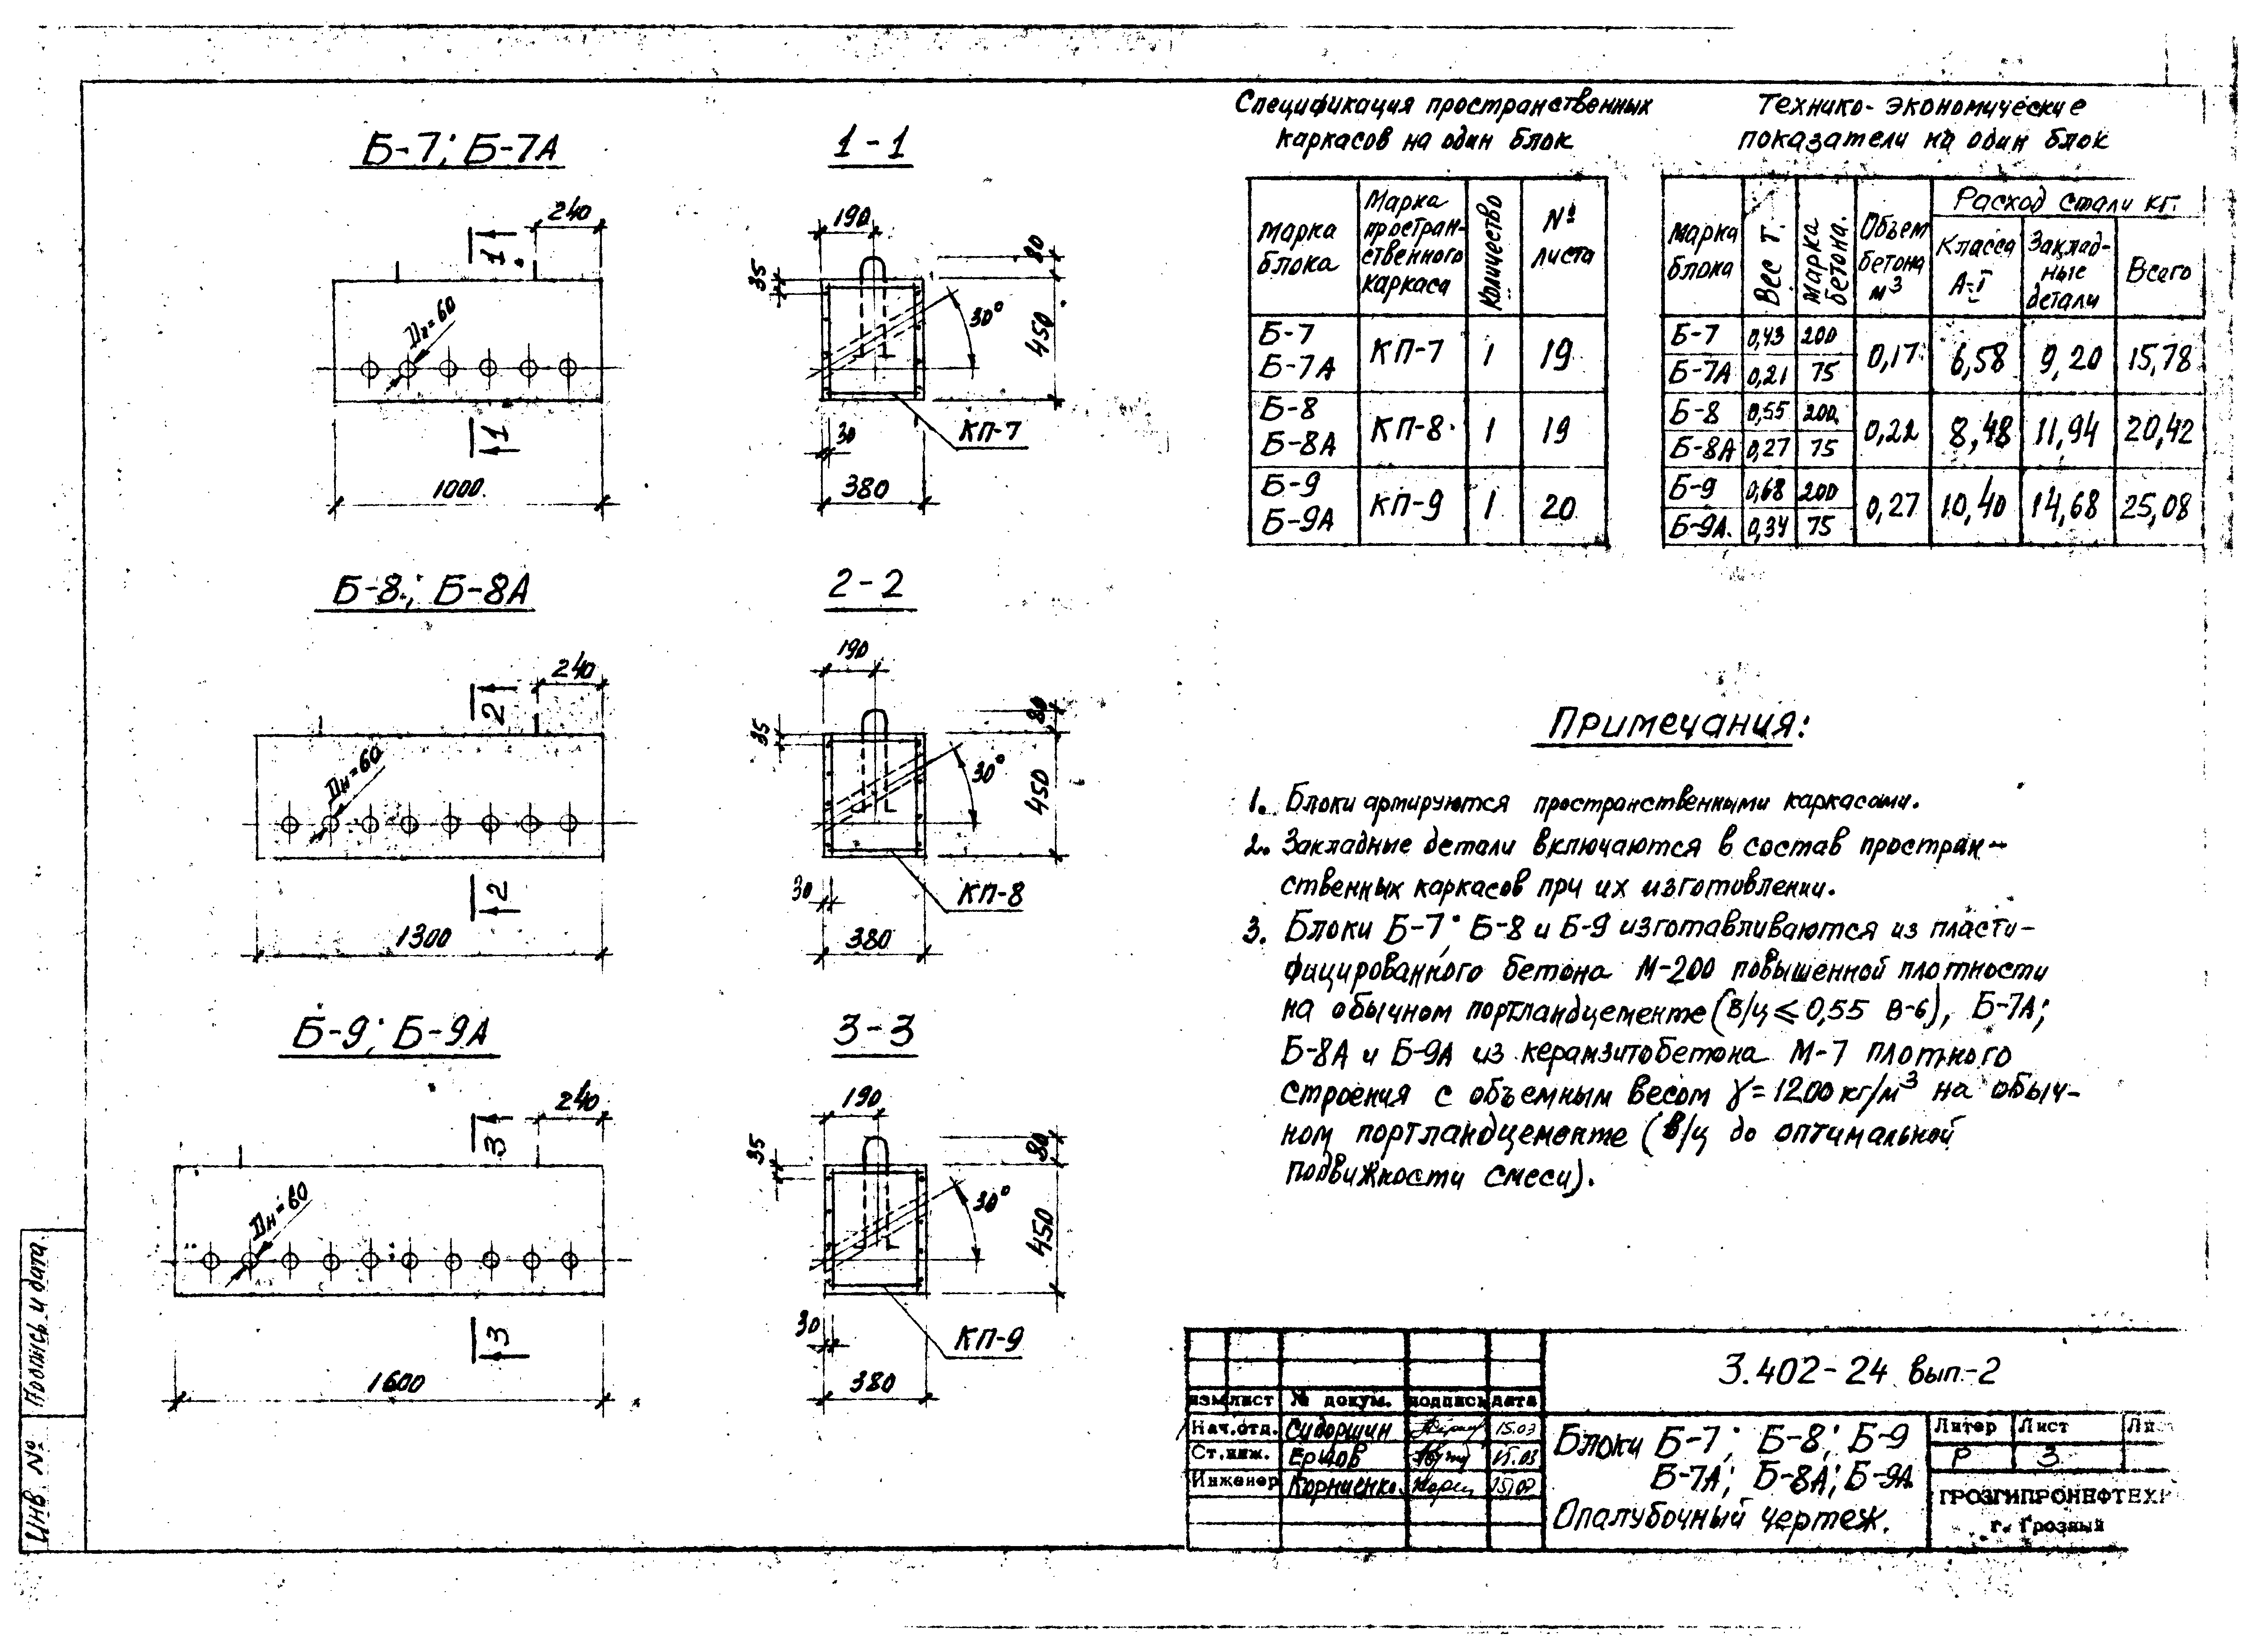 Б-7; Б-7А
240
1
Dг=60
1
1000
1-1
190
80
35
30°
450
КП-7
30
380
Б-8; Б-8А
240
2
Dн=60
2
1300
2-2
190
80
35
30°
450
КП-8
30
380
Б-9; Б-9А
240
3
Dн=60
3
1600
3-3
190
80
35
30°
450
КП-9
30
380
Спецификация пространственных
каркасов на один блок
Марка блока | Марка простран-ственного каркаса | Количество | № листа
Б-7 | КП-7 | 1 | 19
Б-7А
Б-8 | КП-8 | 1 | 19
Б-8А
Б-9 | КП-9 | 1 | 20
Б-9А
Технико-экономические
показатели на один блок
Марка блока | Вес т. | Марка бетона. | Объем бетона м³ | Расход стали кг.
Класса А-I | Заклад-ные детали | Всего
Б-7 | 0,43 | 200 | 0,17 | 6,58 | 9,20 | 15,78
Б-7А | 0,21 | 75
Б-8 | 0,55 | 200 | 0,22 | 8,48 | 11,94 | 20,42
Б-8А | 0,27 | 75
Б-9 | 0,68 | 200 | 0,27 | 10,40 | 14,68 | 25,08
Б-9А. | 0,34 | 75
Примечания:
1. Блоки армируются пространственными каркасами.
2. Закладные детали включаются в состав простран-
ственных каркасов при их изготовлении.
3. Блоки Б-7; Б-8 и Б-9 изготавливаются из пласти-
фицированного бетона М-200 повышенной плотности
на обычном портландцементе (В/ц ≤ 0,55 В-6), Б-7А;
Б-8А и Б-9А из керамзитобетона М-7 плотного
строения с объемным весом γ=1200 кг/м³ на обыч-
ном портландцементе (в/ц до оптимальной
подвижности смеси).
3.402-24 вып-2
Изм лист № докум. подпись дата
Нач.отд. Сидоршин 15.03
Ст.инж. Ершов 15.03
Инженер Корниенко.
Блоки Б-7; Б-8; Б-9
Б-7А; Б-8А; Б-9А
Опалубочный чертеж.
Литер Лист
Р 3
ГРОЗГИПРОНЕФТЕХ
г. Грозный
Подпись и дата.
Инв №